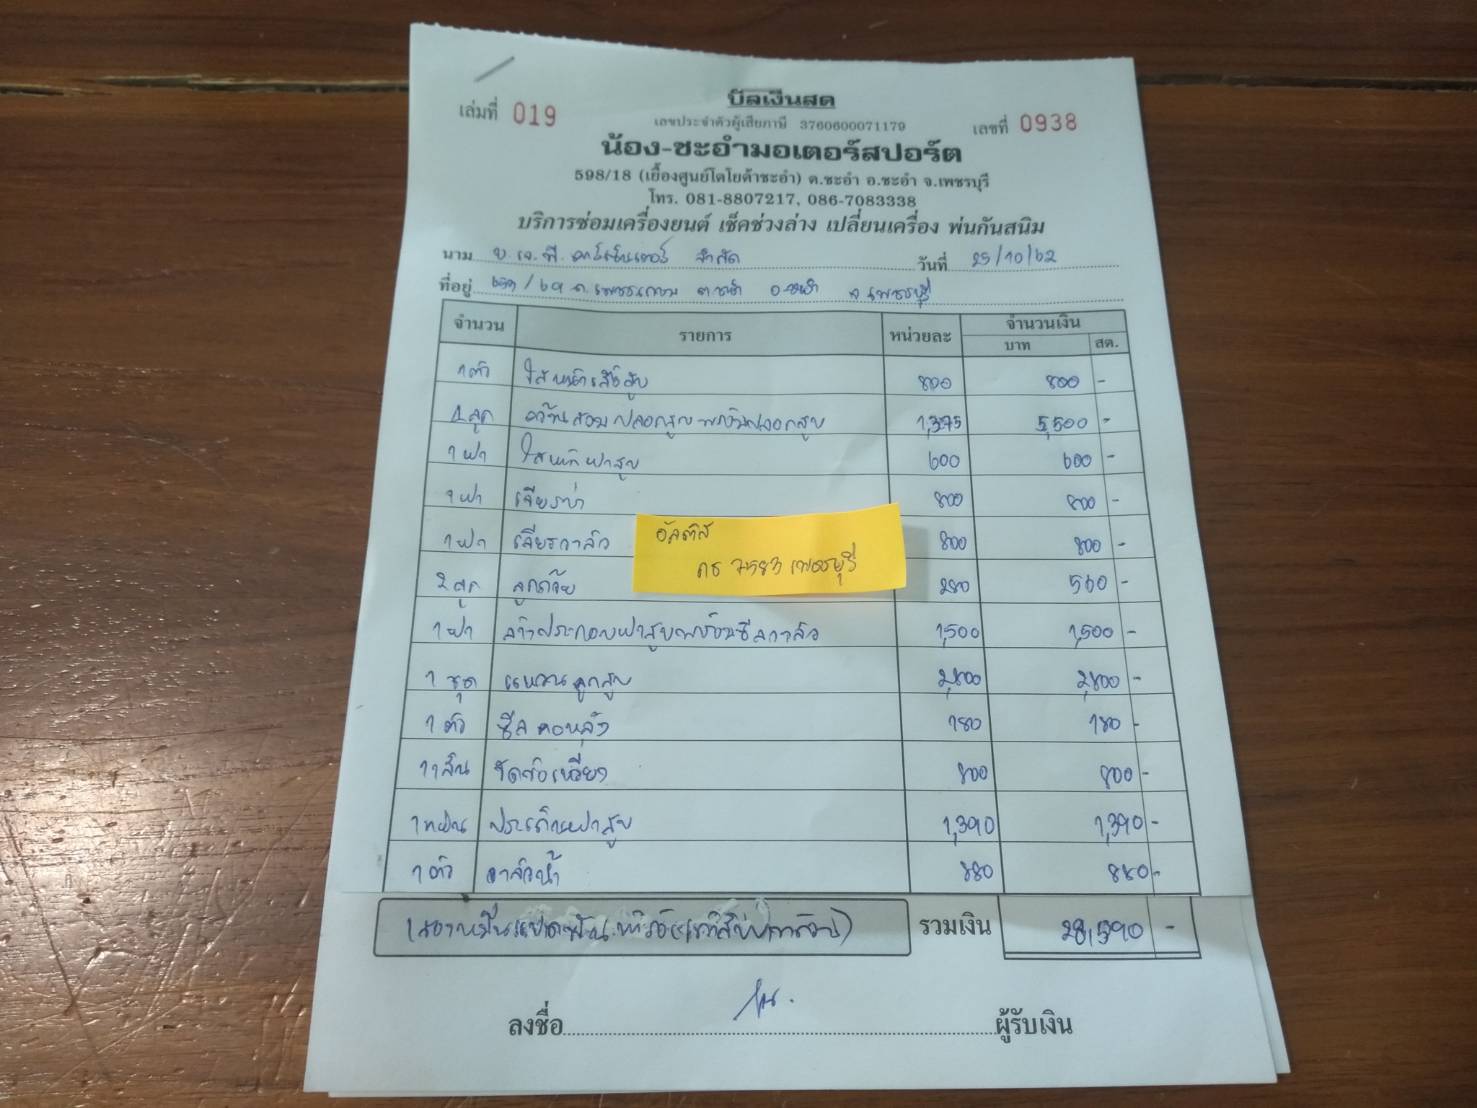 บิลเงินสด
เล่มที่ 019
เลขประจำตัวผู้เสียภาษี 3760600071179
เลขที่ 0938
น้อง-ชะอำมอเตอร์สปอร์ต
598/18 (เยื้องศูนย์โตโยต้าชะอำ) ต.ชะอำ อ.ชะอำ จ.เพชรบุรี
โทร. 081-8807217, 086-7083338
บริการซ่อมเครื่องยนต์ เช็คช่วงล่าง เปลี่ยนเครื่อง พ่นกันสนิม
นาม บ.เจ.พี. จำกัด วันที่ 25/10/62
ที่อยู่ ถ.เพชรเกษม ต.ชะอำ อ.ชะอำ จ.เพชรบุรี
จำนวน รายการ หน่วยละ จำนวนเงิน
บาท สต.
1 ตัว ใสหน้าเสื้อสูบ 800 800 -
4 ลูก คว้านสวมปลอกสูบพร้อมปลอกสูบ 1,375 5,500 -
1 ฝา ใสหน้าฝาสูบ 600 600 -
1 ฝา เจียรบ่า 800 800 -
1 ฝา เจียรวาล์ว 800 800 -
อัลติส
กธ เพชรบุรี
2 ลูก ลูกถ้วย 280 560 -
1 ฝา ล้างประกอบฝาสูบพร้อมซีลวาล์ว 1,500 1,500 -
1 ชุด แหวนลูกสูบ 2,800 2,800 -
1 ตัว ซีลคอหลัง 180 180 -
1 เส้น ขัดข้อเหวี่ยง 800 800 -
1 แผ่น ประเก็นฝาสูบ 1,390 1,390 -
1 ตัว วาล์วน้ำ 880 880 -
(สองหมื่นแปดพันห้าร้อยเก้าสิบบาทถ้วน) รวมเงิน 28,590 -
ลงชื่อ ผู้รับเงิน